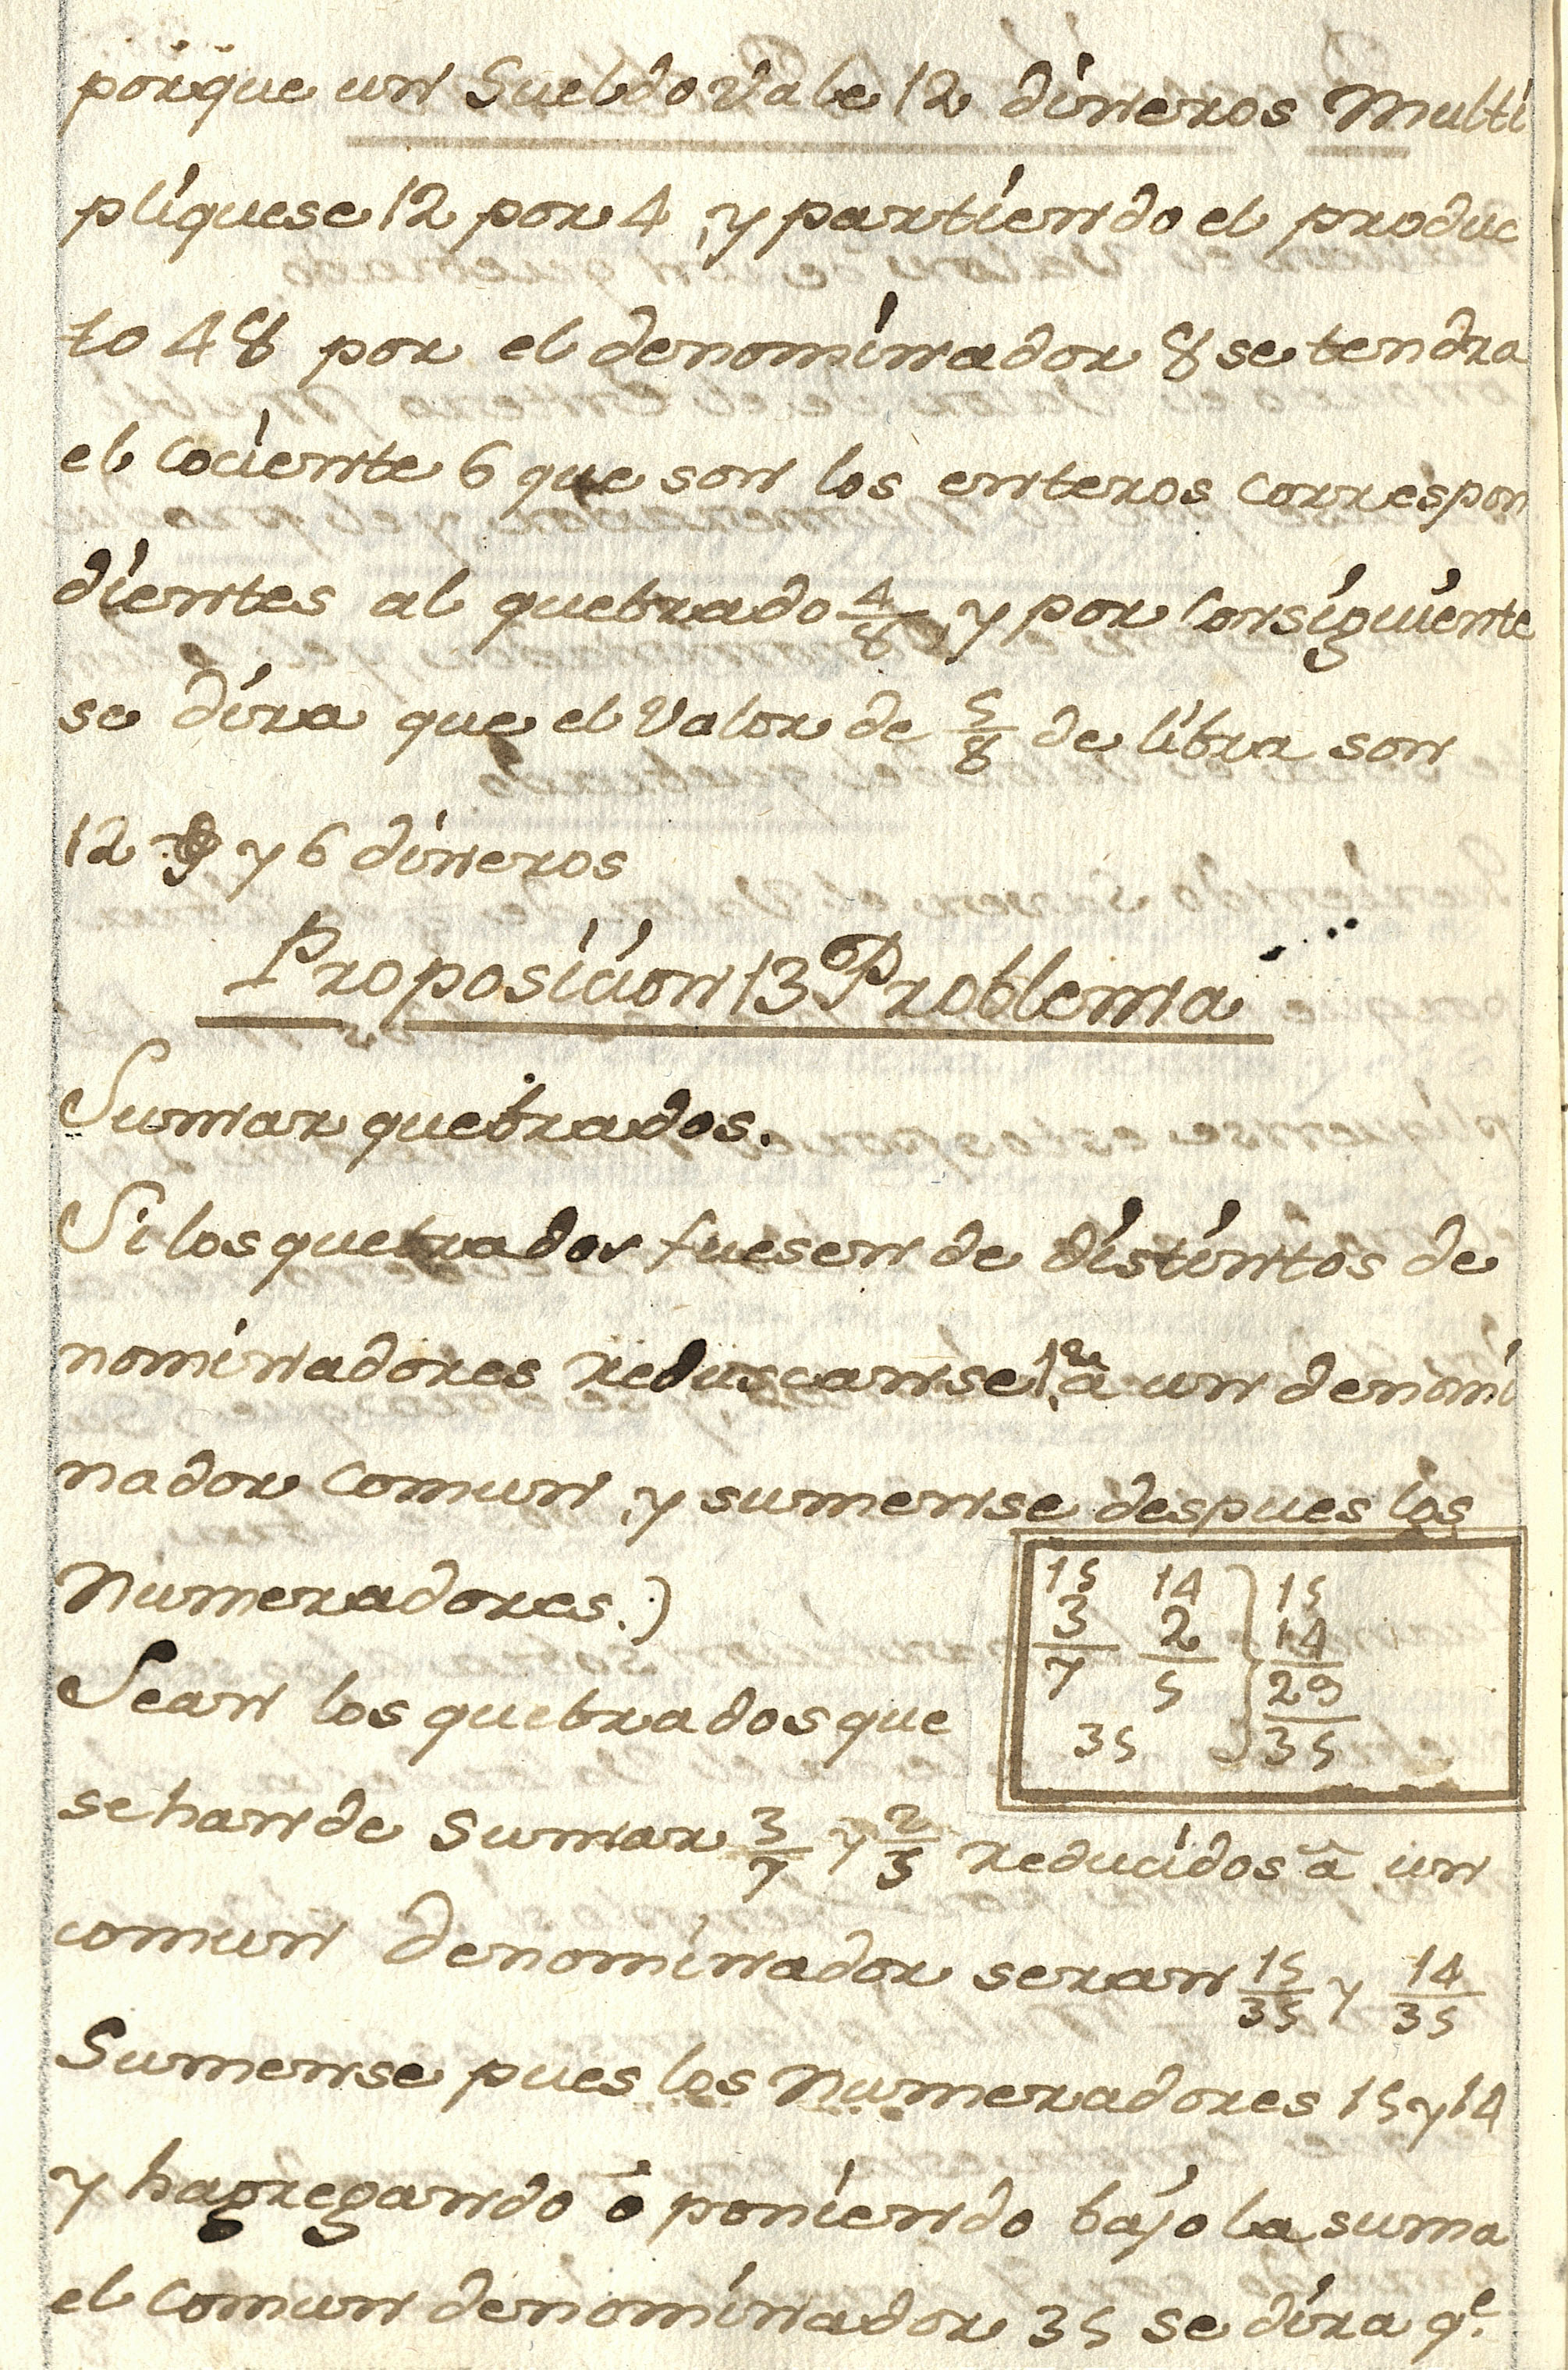 porque un Sueldo Vale 12 dineros Multi
pliquese 12 por 4, y partiendo el produc
to 48 por el denominador 8 se tendra
el cociente 6 que son los enteros correspon
dientes al quebrado 4/8, y por consiguiente
se dira que el Valor de 5/8 de libra son
12 y 6 dineros
Proposicion 13 Problema
Sumar quebrados.
Si los quebrador fuesen de distintos de
nominadores reduscanse 1.º â un denomi
nador comun, y sumense despues los
Numeradores.)
15 14 15
3/7 2/5 14
29
35 35
Sean los quebrados que
se han de sumar 3/7 y 2/5 reducidos â un
comun denominador seran 15/35 y 14/35
Sumense pues los Numeradores 15 y 14
y hagregando ò poniendo bajo la suma
el comun denominador 35 se dira q.e